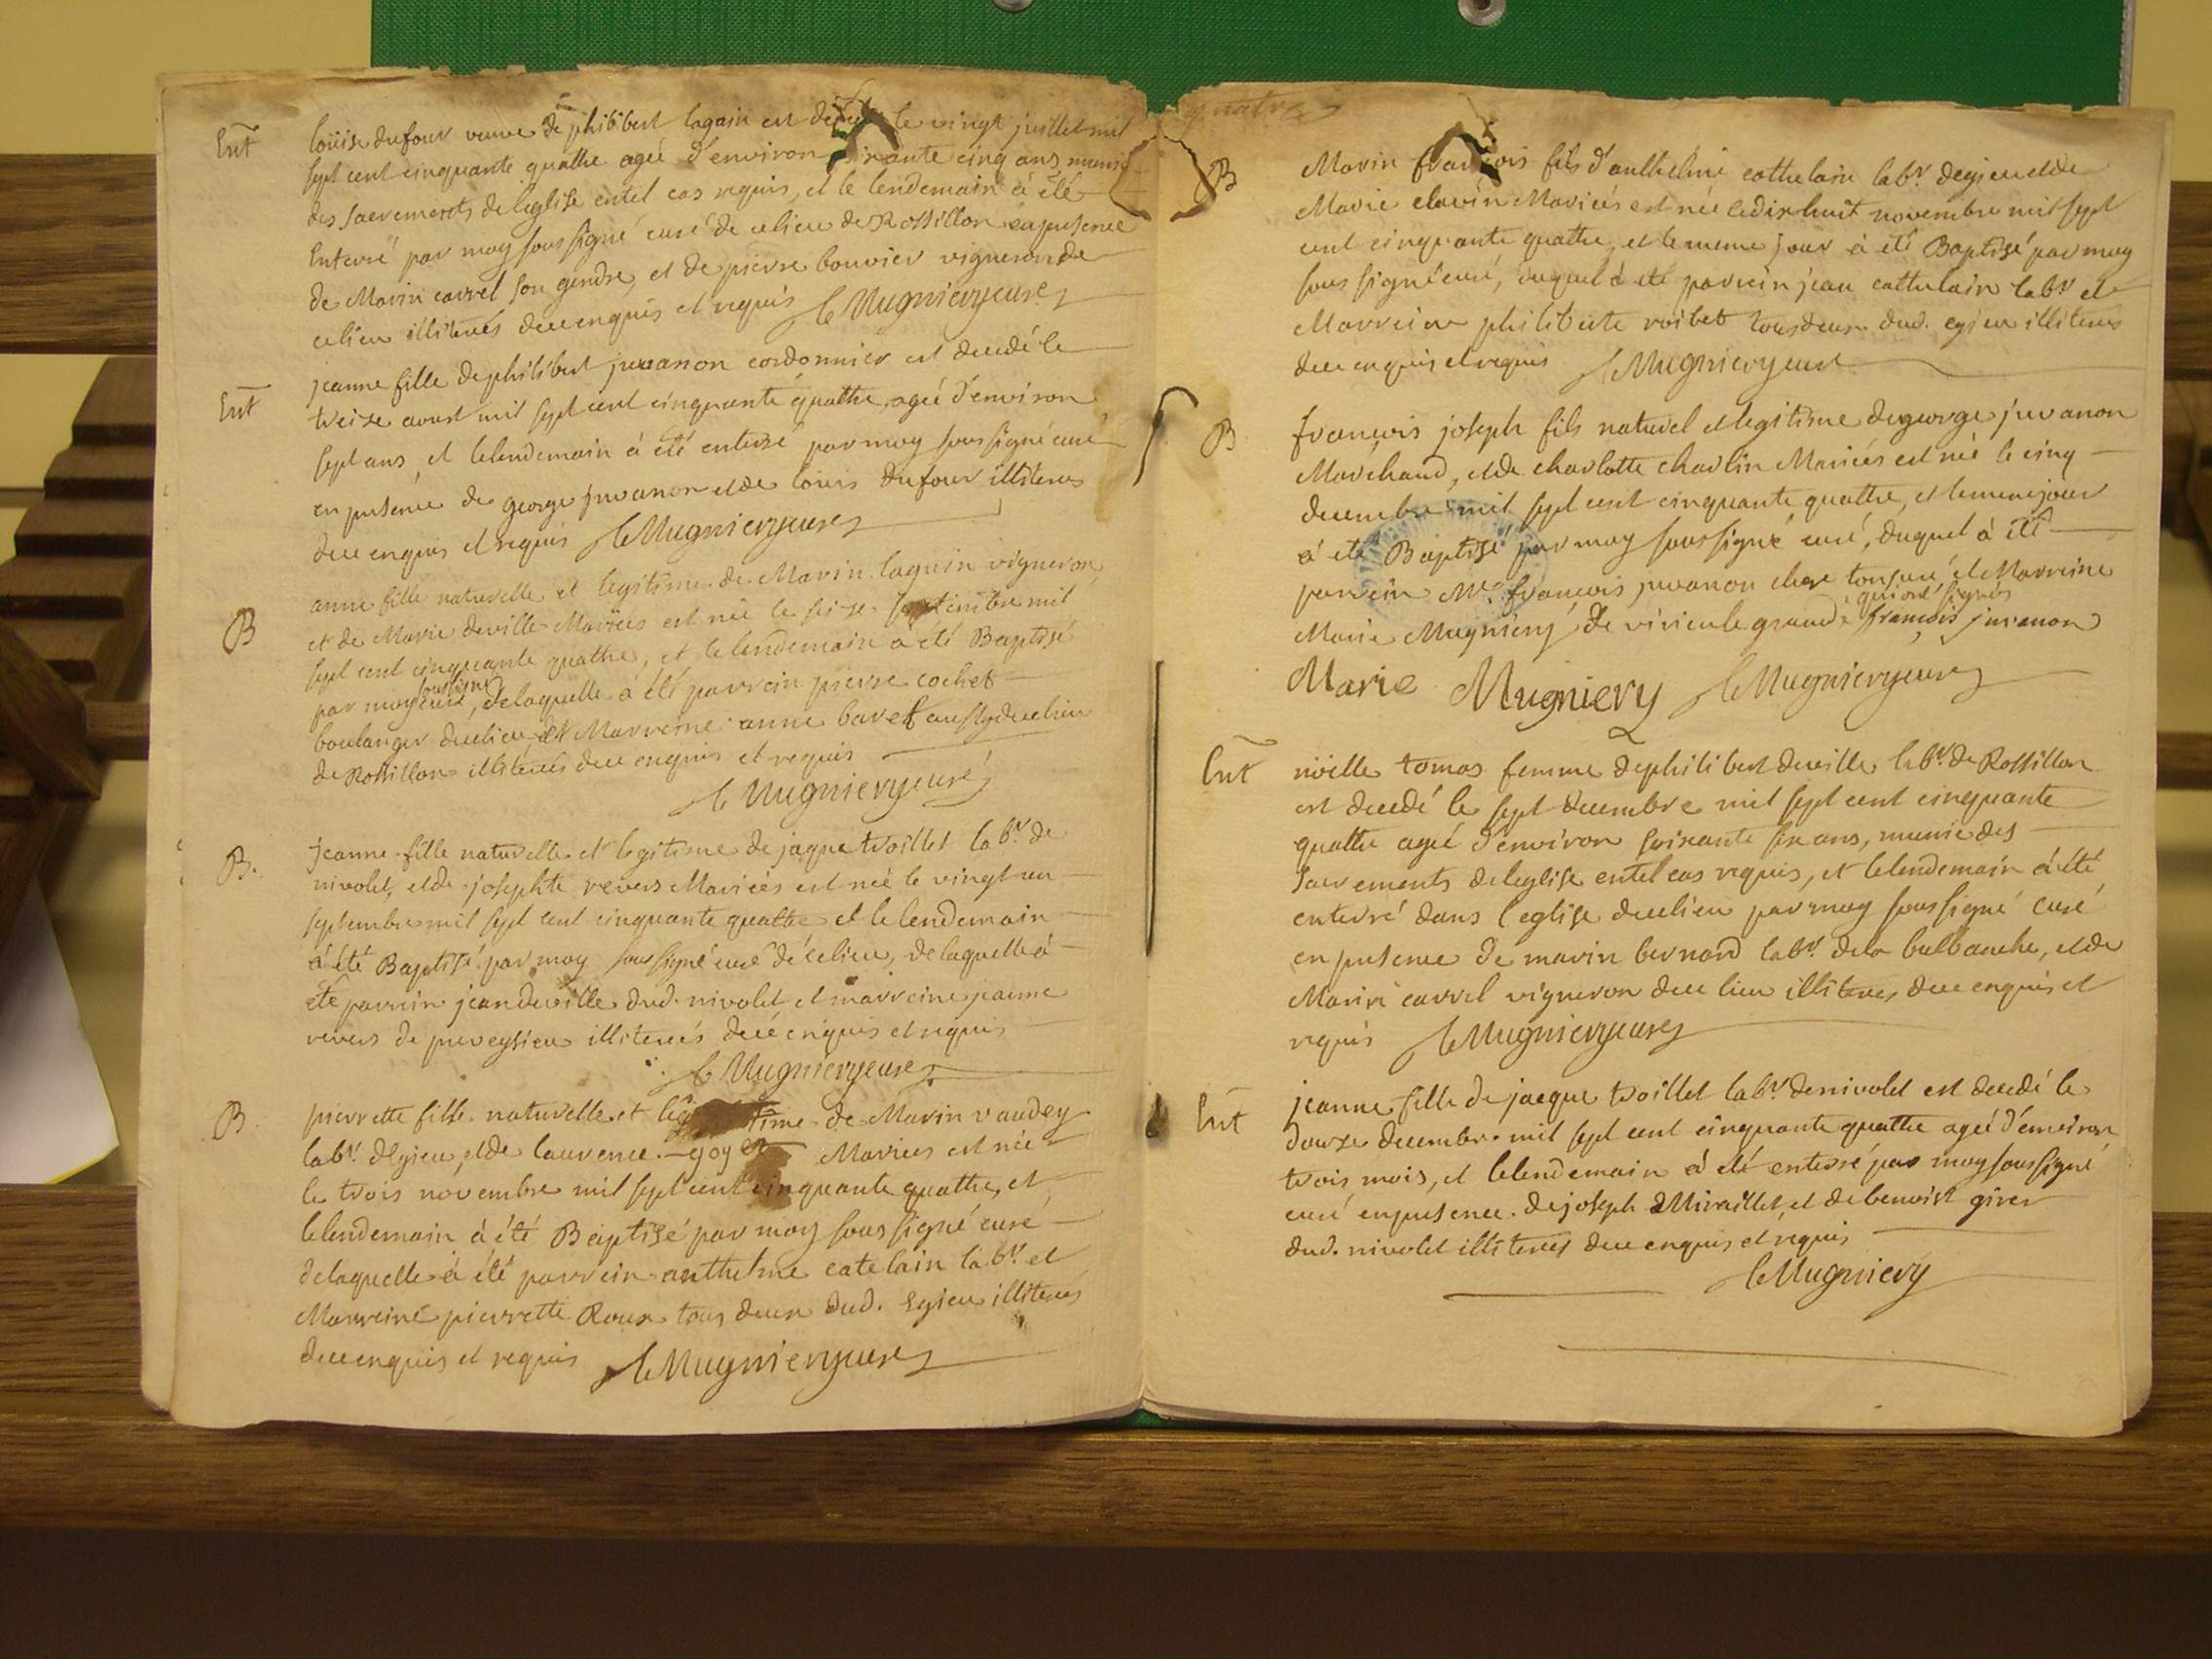 Ent
loüise dufour veuve de philibert lagain est decedé le vingt juillet mil
sept cent cinquante quattre ageé d'environ soixante cinq ans, munie
des sacrements de leglise entel cas requis, et le lendemain à été
Enterré par moy soussigné curé de celieu de Rossillon en presence
de Marin carrel son gendre, et de pierre bouvier vigneron de
celieu illiterés dece enquis et requis Le Mugniery curé
Ent
jeanne fille de philibert juvanon cordonnier est decedé le
treize aoust mil sept cent cinquante quattre, ageé d'environ
sept ans, et lelendemain à été enterré par moy soussigné curé
en presence de george juvanon et de louis dufour illiteres
dece enquis et requis Le Mugniery curé
B
anne fille naturelle et legitime de Marin laguin vigneron,
et de Marie deville Mariées est née le seize septembre mil
sept cent cinquante quattre, et lelendemain a été Baptisé
par moy soussigné curé, delaquelle à été parrein pierre cochet
boulanger decelieu et Marreine anne baret aussy decelieu
de Rossillon illiterés dece enquis et requis
Le Mugniery curé
B.
jeanne fille naturelle et legitime de jaque troillet labr. de
nivolet, et de josephte revers Mariées est née le vingt un
septembre mil sept cent cinquante quattre et le lendemain
à été Baptisé par moy soussigné curé de celieu, delaquelle à
eté parrein jean deville dud. nivolet et marreine jeanne
revers de preveysieu illiterés dece enquis et requis
Le Mugniery curé
B.
pierrette fille naturelle et legitime de Marin vaudey
labr. degieu, et de laurence goyet Mariees est née
le trois novembre mil sept cent cinquante quattre, et
lelendemain à été Baptisé par moy soussigné curé
delaquelle à été parrein anthelme catelain labr. et
Marreine pierrette Roux tous deux dud. Egieu illiterés
dece enquis et requis Le Mugniery curé
quatre
B
Marin francois fils d'anthelme cathelain labr. degieu et de
Marie clavin Mariés est née ledix huit novembre mil sept
cent cinquante quattre, et le meme jour à été Baptisé par moy
soussigné curé, duquel à eté parrein jean cathelain labr et
Marreine philiberte roibet tous deux dud. egieu illiteres
dece enquis et requis Le Mugniery curé
B.
francois joseph fils naturel et legitime de george juvanon
Marchand, et de charlotte charlin Mariés est né le cinq
decembre mil sept cent cinquante quattre, et lememe jour
à eté Baptisé par moy soussigné curé, duquel à été
parrein Mre. francois juvanon clerc tonsuré, et Marreine
Marie Mugniery de virieu le grand qui ont signés françois juvanon
Marie Mugniery Le Mugniery curé
Ent
nöelle tomas femme de philibert deville labr. de Rossillon
est decedé le sept decembre mil sept cent cinquante
quattre ageé d'environ soixante six ans, munie des
sacrements de leglise entel cas requis, et lelendemain à été
enterré dans leglise decelieu par moy soussigné curé
en presence de marin bernard labr. dela balbanche, et de
Marin carrel vigneron dece lieu illiteres dece enquis et
requis Le Mugniery curé
Ent
jeanne fille de jacque troillet labr. de nivolet est decedé le
douze decembre mil sept cent cinquante quattre ageé d'environ
trois mois, et lelendemain à été enterré par moy soussigné
curé en presence de joseph Miraillet et de benoist giret
dud. nivolet illiterés dece enquis et requis
Le Mugniery